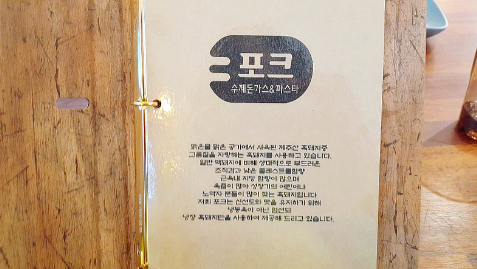 포크
수제돈가스&파스타
맑은물 맑은 공기에서 사육된 제주산 흑돼지중
고품질을 자랑하는 흑돼지를 사용하고 있습니다.
일반 백돼지에 비해 상대적으로 부드러운
조직감과 낮은 콜레스트롤함량
근육내 지방 함량이 많으며
육즙이 많아 성장기의 어린이나
노약자 분들이 많이 찾는 흑돼지입니다
저희 포크는 신선도와 맛을 유지하기 위해
냉동육이 아닌 엄선된
냉장 흑돼지만을 사용하여 제공해 드리고 있습니다.